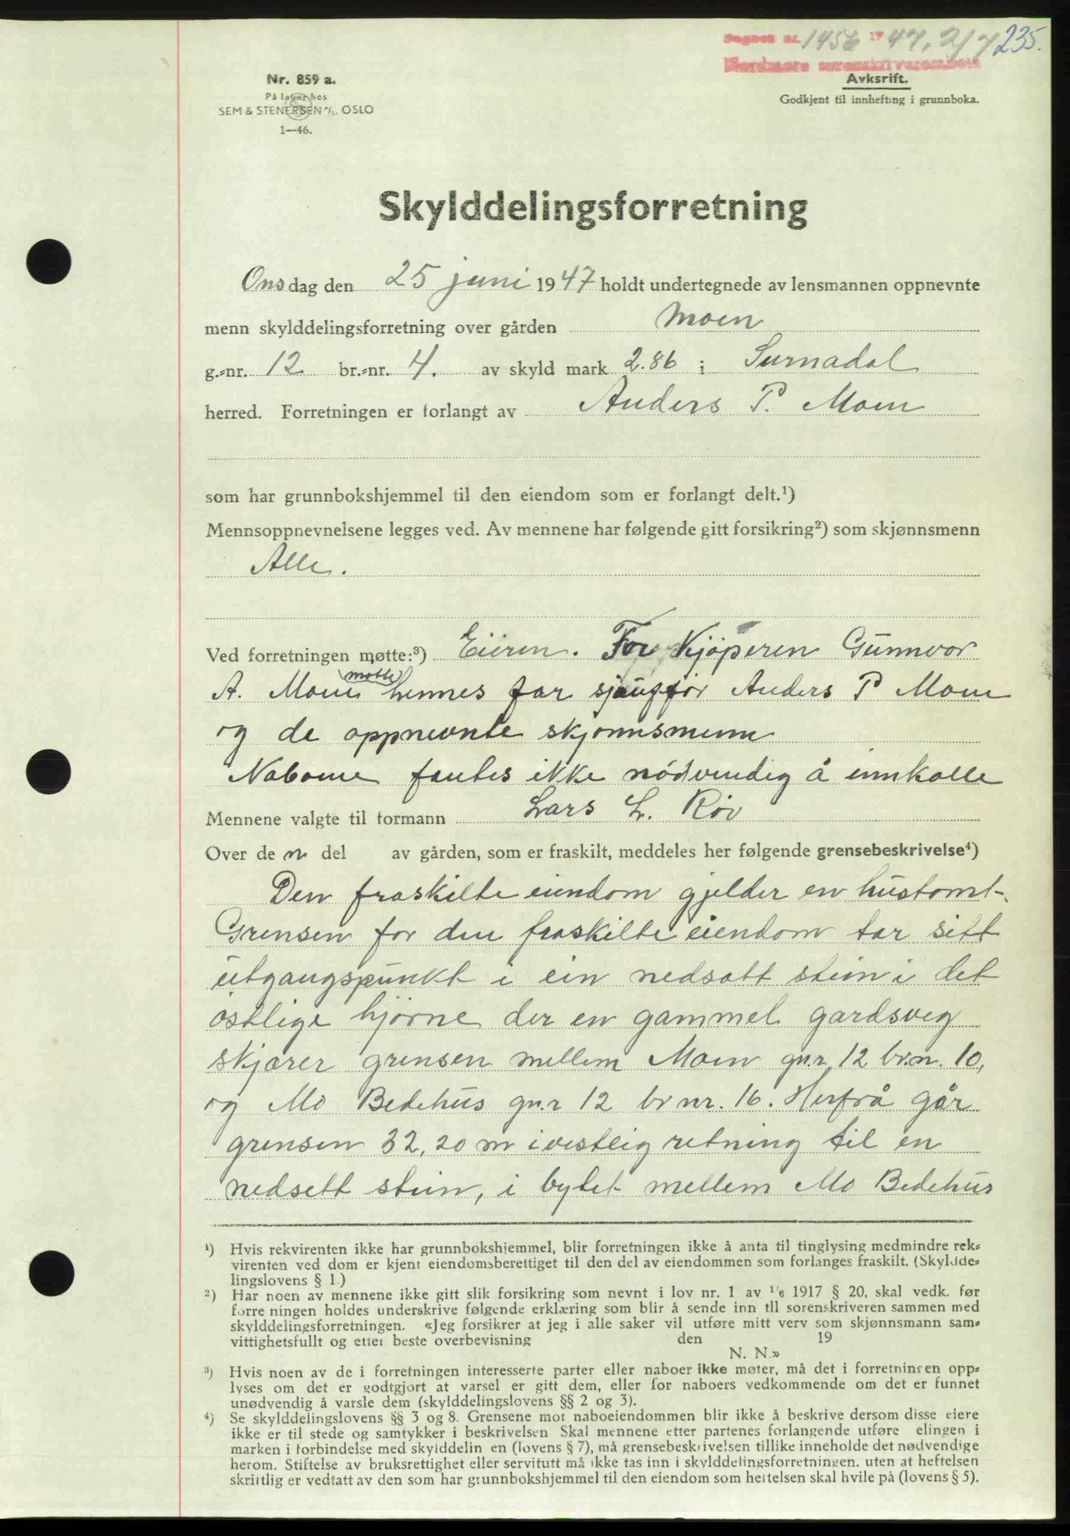 Dagbok nr. 1456 19 47, 2/7 235.
Nordmøre sorenskriverembete
Nr. 859 a.
På lager hos
SEM & STENERSEN A/S. OSLO
1—46.
Avksrift.
Godkjent til innhefting i grunnboka.
Skylddelingsforretning
Onsdag den 25 juni 1947 holdt undertegnede av lensmannen oppnevnte
menn skylddelingsforretning over gården Moen
g.-nr. 12 br.-nr. 4. av skyld mark 2.86 i Surnadal
herred. Forretningen er forlangt av Anders P. Moen
som har grunnbokshjemmel til den eiendom som er forlangt delt.¹)
Mennsoppnevnelsene legges ved. Av mennene har følgende gitt forsikring²) som skjønnsmenn
Alle.
Ved forretningen møtte:³) Eieren. For Kjøperen Gunnvor
A. Moen møtte hennes far sjauffør Anders P Moen
og de oppnevnte skjønnsmenn
Naboene fantes ikke nødvendig å innkalle
Mennene valgte til formann Lars L. Røv
Over de n del av gården, som er fraskilt, meddeles her følgende grensebeskrivelse⁴)
Den fraskilte eiendom gjelder en hustomt.
Grensen for den fraskilte eiendom tar sitt
utgangspunkt i ein nedsatt stein i det
østlige hjørne der en gammel gardsveg
skjærer grensen mellem Moen gn.r 12 br.n. 10,
og Mo Bedehus gn.r 12 br nr. 16. Herfrå går
grensen 32,20 m i vestlig retning til en
nedsett stein, i bytet mellem Mo Bedehus
¹) Hvis rekvirenten ikke har grunnbokshjemmel, blir forretningen ikke å anta til tinglysing medmindre rek-
virenten ved dom er kjent eiendomsberettiget til den del av eiendommen som forlanges fraskilt. (Skyldde-
lingslovens § 1.)
²) Har noen av mennene ikke gitt slik forsikring som nevnt i lov nr. 1 av 1/6 1917 § 20, skal vedk. før
forre ningen holdes underskrive følgende erklæring som blir å sende inn til sorenskriveren sammen med
skylddelingsforretningen. «Jeg forsikrer at jeg i alle saker vil utføre mitt verv som skjønnsmann sam-
vittighetsfullt og etter beste overbevisning den 19
N. N.»
³) Hvis noen av de i forretningen interesserte parter eller naboer ikke møter, må det i forretningen opp-
lyses om det er godtgjort at varsel er gitt dem, eller for naboers vedkommende om det er funnet
unødvendig å varsle dem (skylddelingslovens §§ 2 og 3).
⁴) Se skylddelingslovens §§ 3 og 8. Grensene mot naboeiendommen blir ikke å beskrive dersom disse eiere
ikke er til stede og samtykker i beskrivelsen Skal mennene etter partenes forlangende utføre elingen i
marken i forbindelse med skylddelin en (lovens § 7), må grensebeskrivelsen tillike inneholde det nødvendige
herom. Stiftelse av bruksrettighet eller servitutt må ikke tas inn i skylddelingsforretningen, uten at heftelsen
skriftlig er vedtatt av den som har grunnbokshjemmel til den eiendom som heftelsen skal hvile på (lovens § 5).